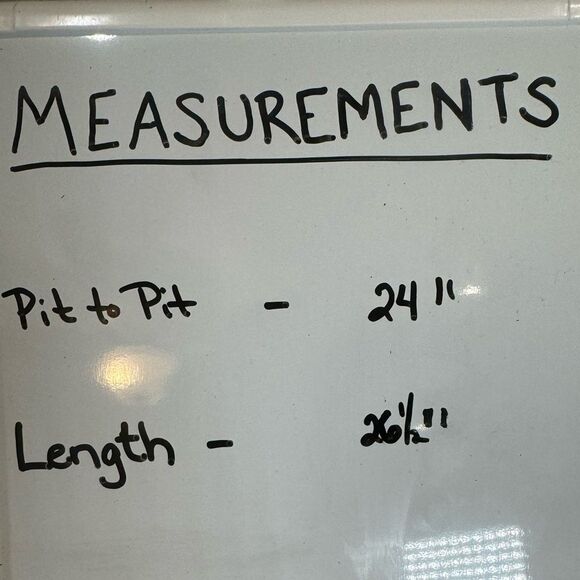 MEASUREMENTS
Pit to Pit - 24"
Length - 26½"